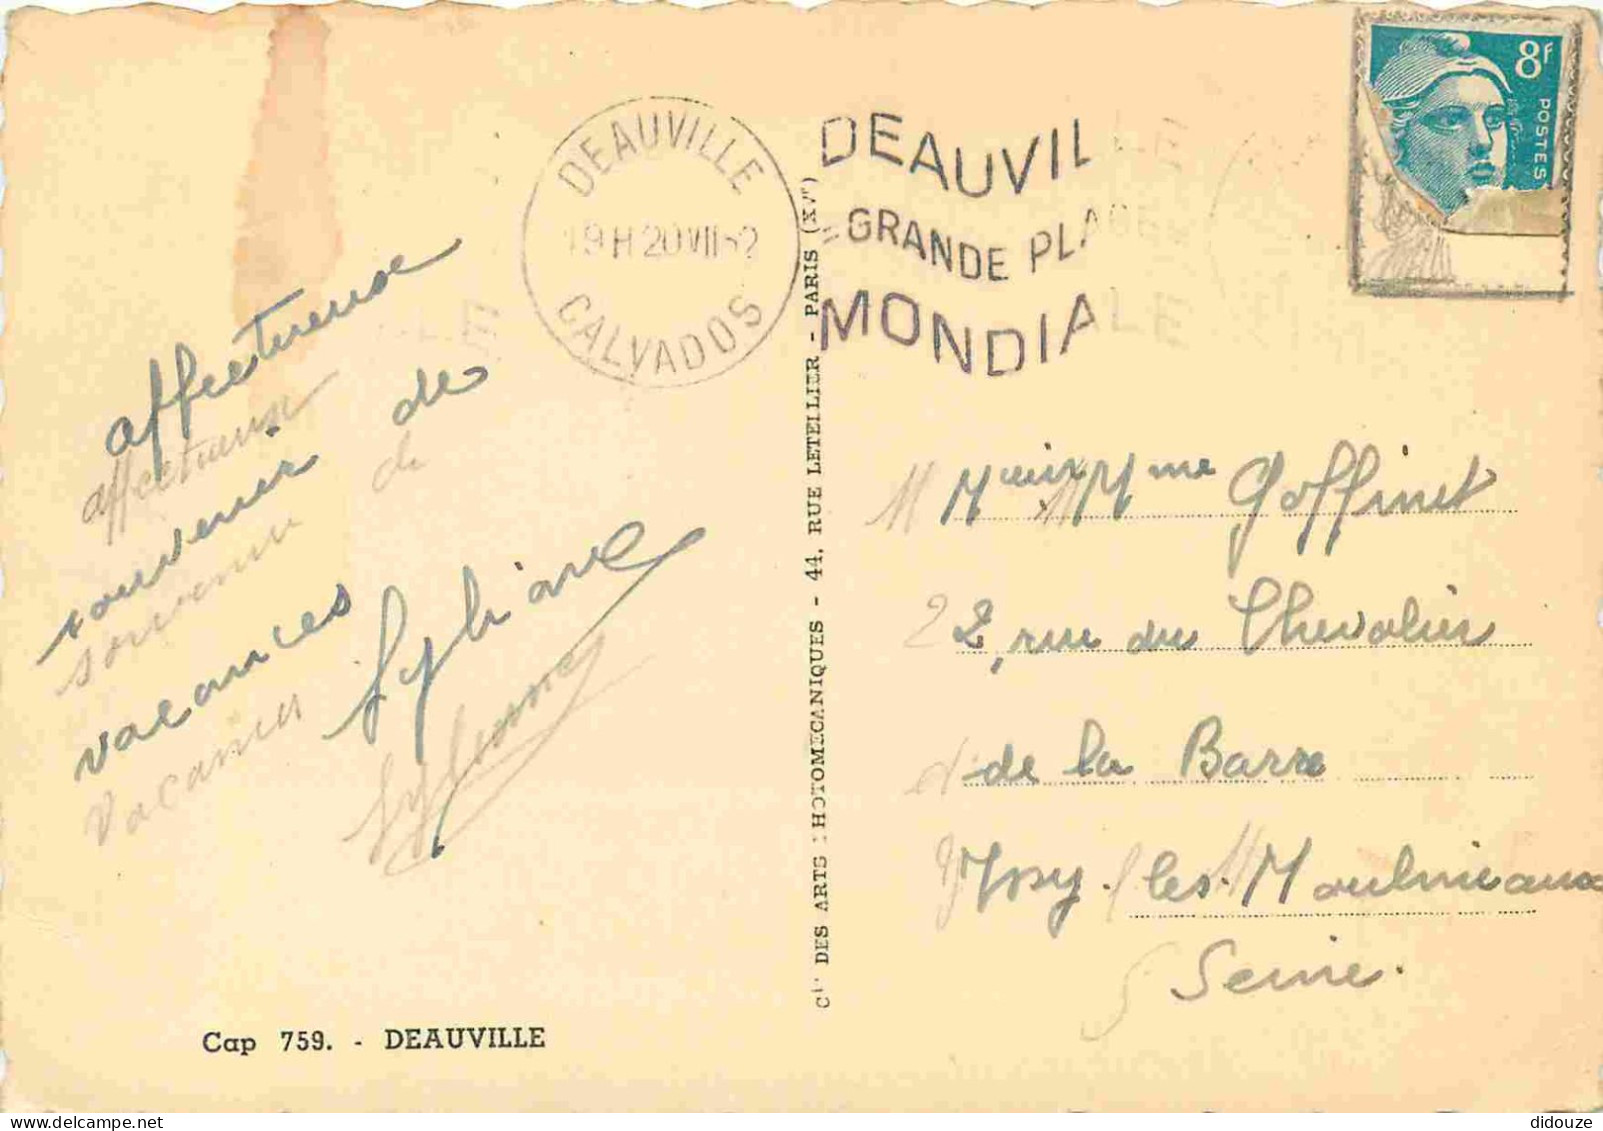 DEAUVILLE
19H 20 VII 52
CALVADOS
DEAUVIL
=GRANDE PLAGE
MONDIALE
8F
POSTES
affectueux
affectueux
souvenir de
souvenir de
vacances
vacances
Sylviane
Sylviane
Mr et Mme Goffinet
22, rue du Chevalier
de la Barre
Issy-les-Moulineaux
Seine.
DES ARTS PHOTOMECANIQUES - 44, RUE LETELLIER - PARIS (XVe)
Cap 759. - DEAUVILLE
didouze